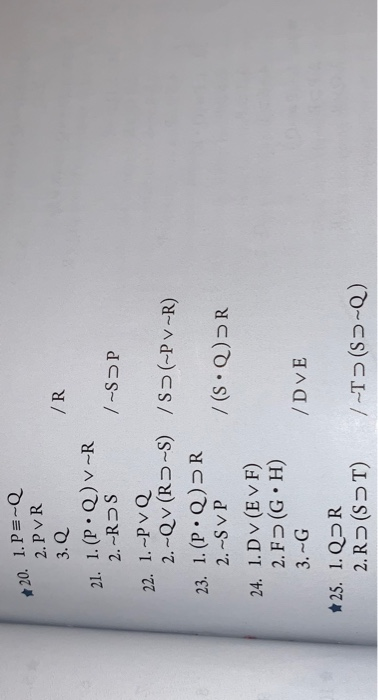 ★ 20. 1. P ≡ ~Q
2. P ∨ R
3. Q / R
21. 1. (P • Q) ∨ ~R
2. ~R ⊃ S / ~S ⊃ P
22. 1. ~P ∨ Q
2. ~Q ∨ (R ⊃ ~S) / S ⊃ (~P ∨ ~R)
23. 1. (P • Q) ⊃ R
2. ~S ∨ P / (S • Q) ⊃ R
24. 1. D ∨ (E ∨ F)
2. F ⊃ (G • H)
3. ~G / D ∨ E
★ 25. 1. Q ⊃ R
2. R ⊃ (S ⊃ T) / ~T ⊃ (S ⊃ ~Q)